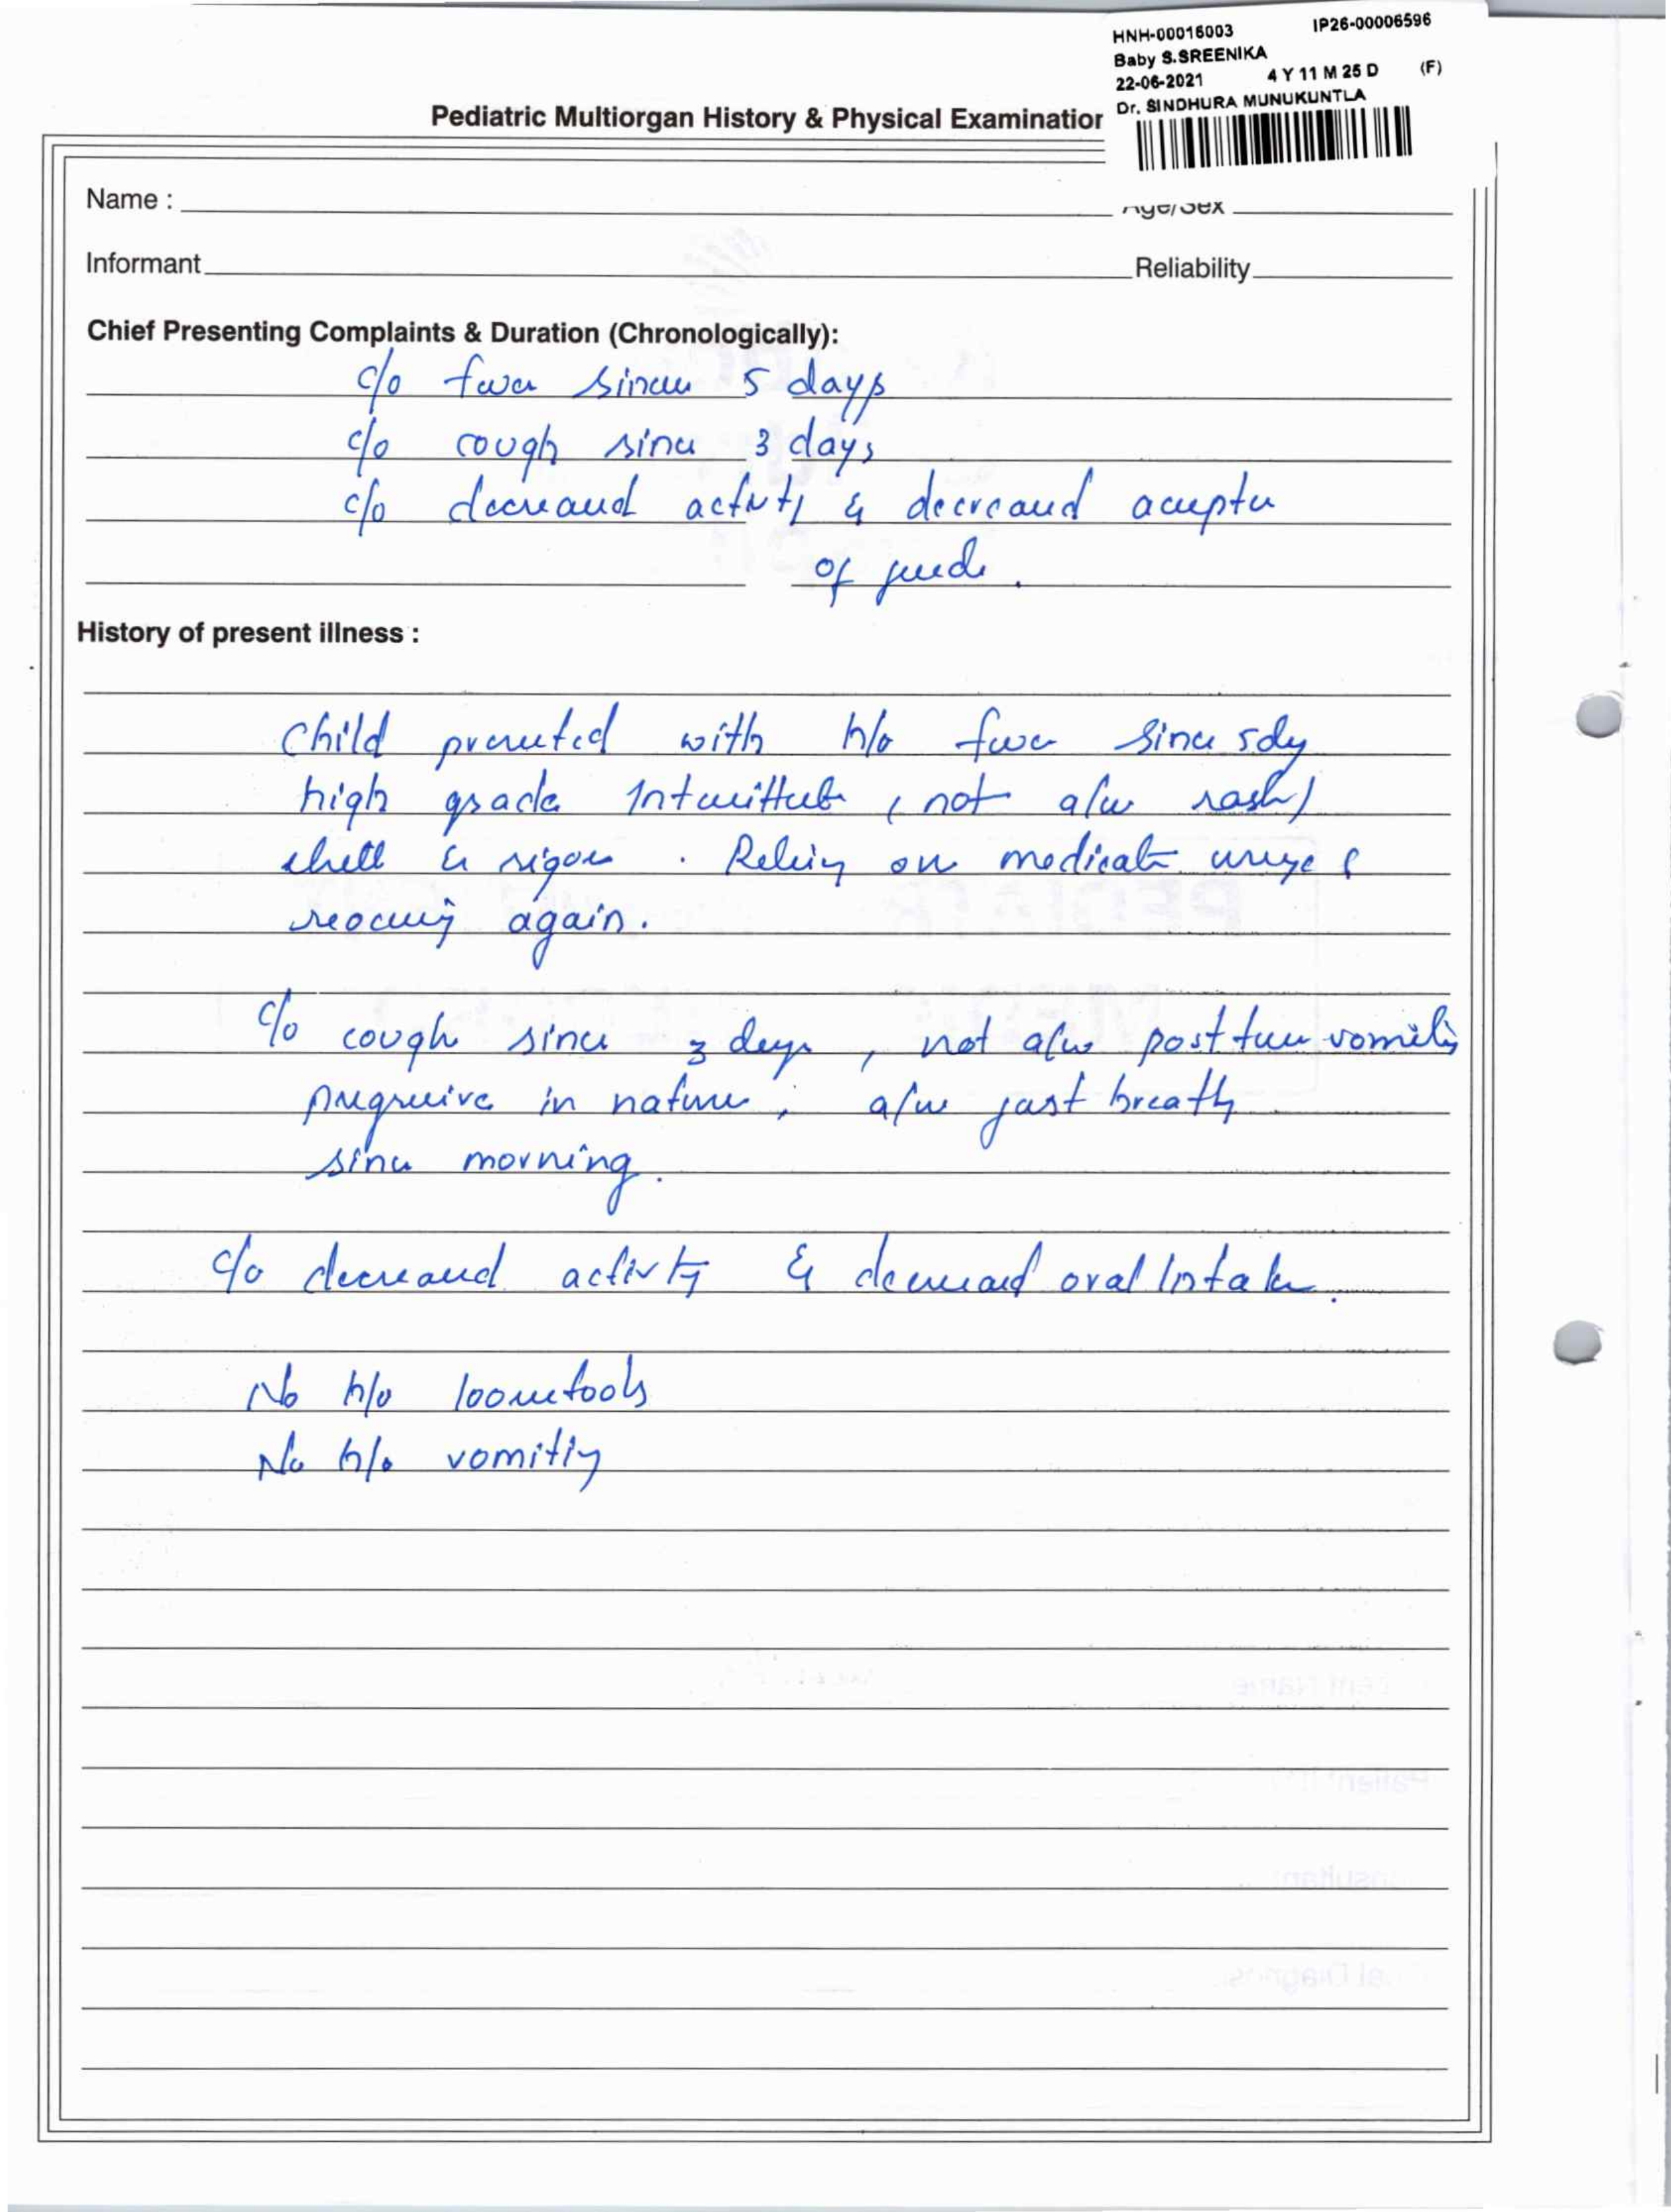 HNH-00016003 IP26-00006596
Baby S.SREENIKA
22-06-2021 4 Y 11 M 25 D (F)
Dr. SINDHURA MUNUKUNTLA
Pediatric Multiorgan History & Physical Examination
Name :
Age/Sex
Informant
Reliability
Chief Presenting Complaints & Duration (Chronologically):
c/o fever since 5 days
c/o cough since 3 days
c/o decreased activity & decreased
of feeds.
History of present illness :
Child presented with h/o fever since 5dy
high grade Intermittent, not a/w rash,
chills & rigors. on again.
c/o cough since 3 days, not a/w post vomiting
progressive in nature, a/w fast breath
since morning.
c/o decreased activity & decreased oral Intake.
No h/o loosestools
No h/o vomiting